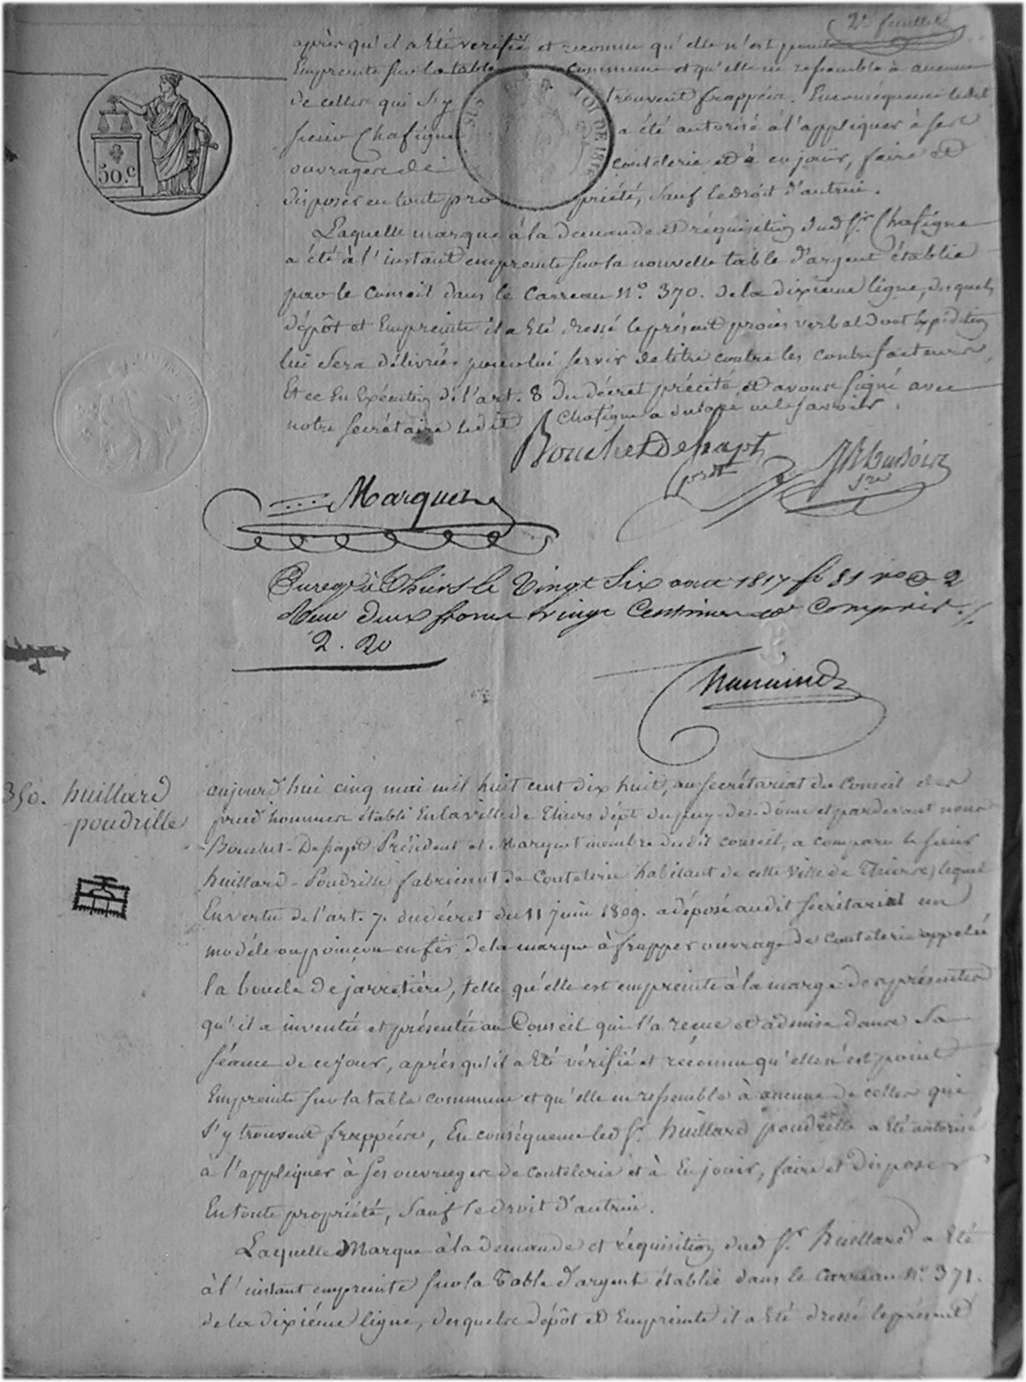 2e feuillet
après qu'il a été verifié et reconnu qu'elle n'est point
Empreinte sur la table commune et qu'elle ne ressemble à aucune
de celles qui s'y trouvent frappées. En conséquence ledit
sieur Chafigne a été autorisé à l'appliquer à ses
ouvrages de coutelerie et à en jouir, faire et
disposer en toute propriété, sauf le droit d'autrui.
50.c
LOI DE 1816
Laquelle marque à la demande et réquisition dud. Sr. Chafigne
a été à l'instant empreinte sur la nouvelle table d'argent établie
par le Conseil dans le Carreau No. 370. de la dixième ligne, desquels
dépôt et Empreinte il a été dressé le présent procès verbal dont Expédition
lui sera délivrée pour lui servir de titre contre les contrefacteurs,
Et ce En Exécution de l'art. 8 du décret précité, et avons signé avec
notre secrétaire ledit Chafigne a déclaré ne le savoir.
Marques
Enregé à Thiers le Vingt Six aout 1817 fo 81 ro C 2
Reçu deux francs vingt Centimes Compris
2 . 20
350. huillard
-poudrille
aujourd'hui cinq mai mil huit cent dix huit, au secrétariat du Conseil des
prud'hommes établi En la ville de Thiers dépt. du puy-de-dôme et pardevant nous
Président et Marquet membre dudit conseil, a comparu le sieur
huillard-Poudrille fabricant de Coutelerie habitant de cette Ville de Thiers, lequel
En vertu de l'art. 7. du décret du 11 juin 1809. a déposé audit secrétariat un
modèle ou poinçon en fer de la marque à frapper ouvrage de coutelerie appelée
la boucle de jarretière, telle qu'elle est empreinte à la marge des présentes
qu'il a inventée et présentée au Conseil qui l'a reçue et admise dans sa
séance de ce jour, après qu'il a été vérifié et reconnu qu'elle n'est point
Empreinte sur la table commune et qu'elle ne ressemble à aucune de celles qui
s'y trouvent frappées, En conséquence led. Sr. huillard poudrille a été autorisé
à l'appliquer à ses ouvrages de coutelerie et à En jouir, faire et disposer
En toute propriété, sauf le droit d'autrui.
Laquelle Marque à la demande et réquisition dud. Sr. huillard a été
à l'instant empreinte sur la Table d'argent établie dans le carreau No. 371.
de la dixième ligne, desquels dépôt et Empreinte il a été dressé le présent